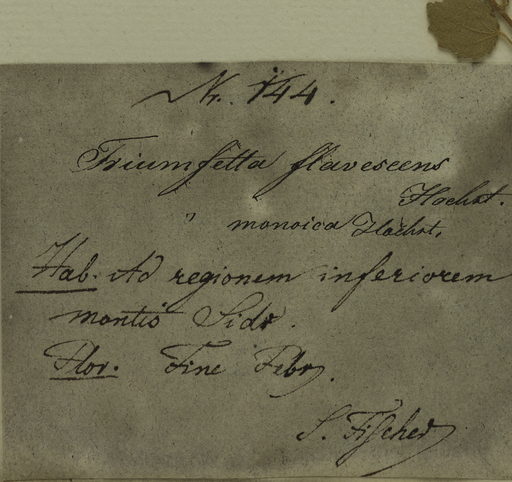 Nr. 144.
Triumfetta flavescens
Hochst.
" monoica Hochst.
Hab. Ad regionem inferiorem
montis Sidr.
Flor. Fine Febr.
S. Fischer